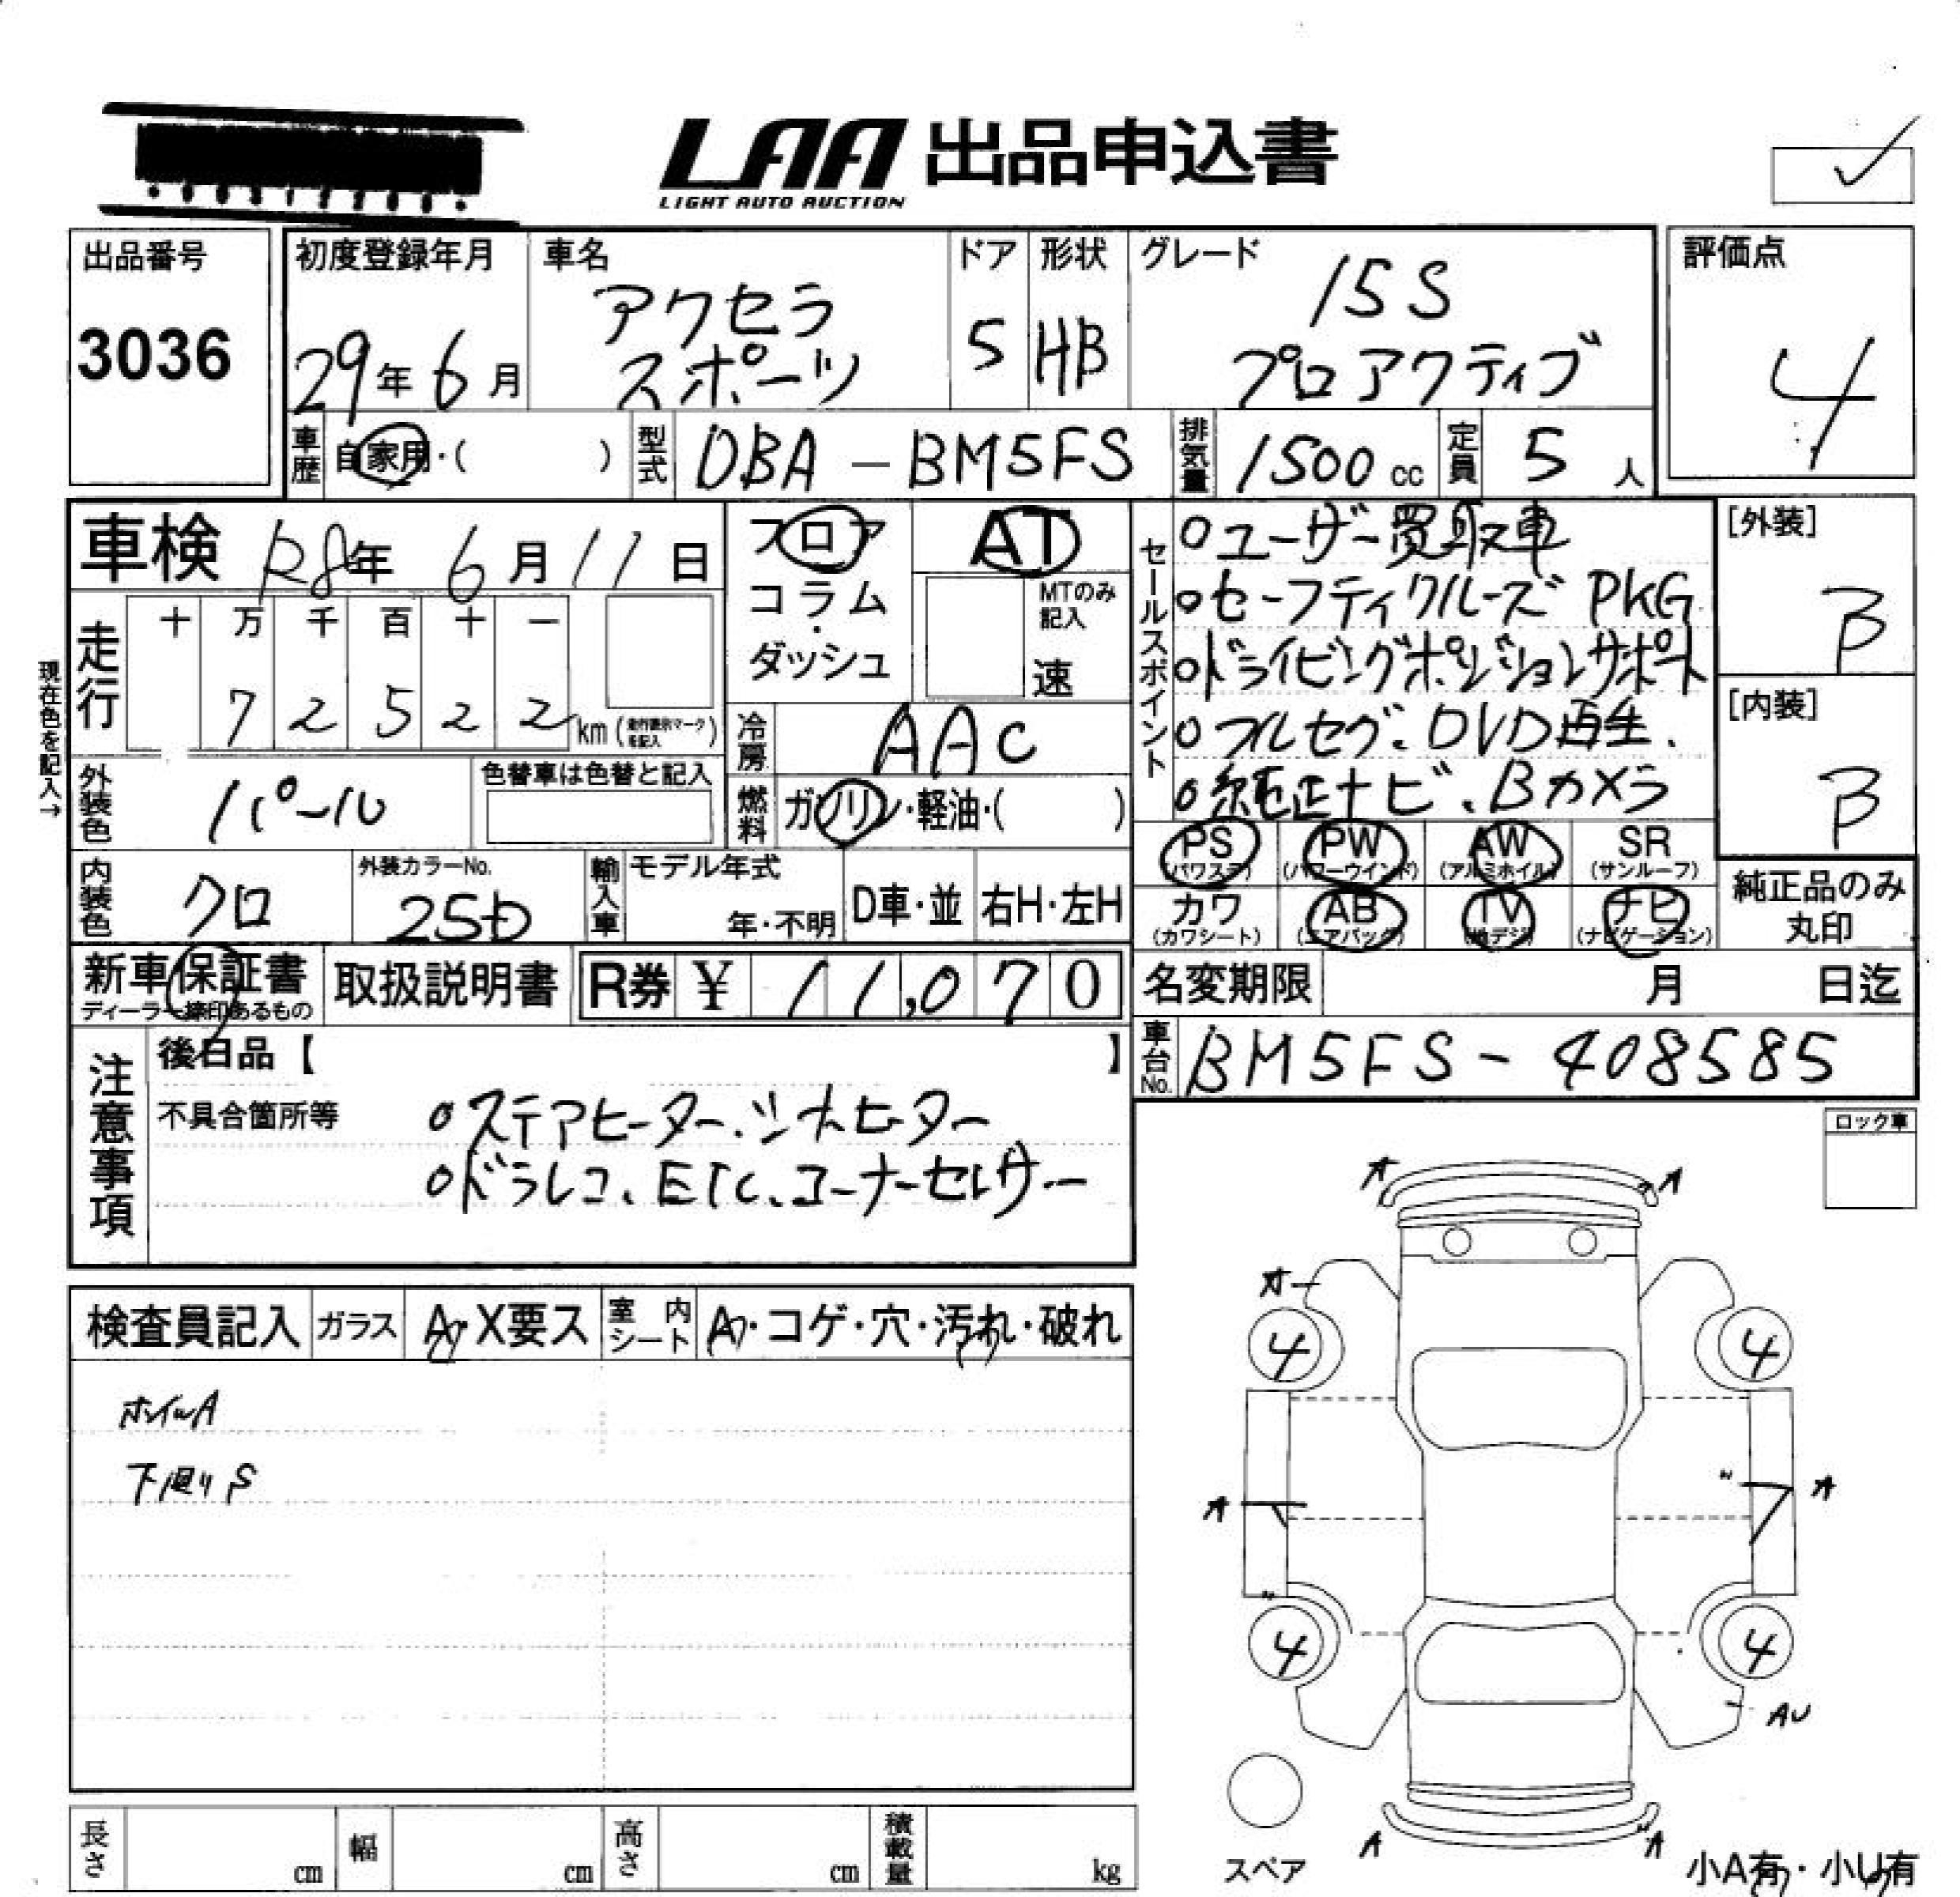 LAA 出品申込書
LIGHT AUTO AUCTION
出品番号
3036
初度登録年月
29年 6月
車名
アクセラ
スポーツ
ドア
5
形状
HB
グレード
15S
プロアクティブ
評価点
4
車歴
自家用・( )
型式
DBA-BM5FS
排気量
1500 cc
定員
5 人
車検 R8年 6月 11日
フロア
コラム
・
ダッシュ
AT
MTのみ
記入
速
セールスポイント
○ユーザー買取車
○セーフティクルーズ PKG
○ドライビングポジションサポート
○フルセグ、DVD再生、
○純正ナビ、Bカメラ
[外装]
B
[内装]
B
現在色を記入→
走行
十 万 千 百 十 一
7 2 5 2 2 km (走行表示マークを記入)
冷房
AAC
外装色
パール
色替車は色替と記入
燃料
ガソリン・軽油・( )
PS
(パワステ)
PW
(パワーウインド)
AW
(アルミホイル)
SR
(サンルーフ)
カワ
(カワシート)
AB
(エアバック)
TV
(地デジ)
ナビ
(ナビゲーション)
純正品のみ
丸印
内装色
クロ
外装カラーNo.
25D
輸入車
モデル年式
年・不明
D車・並
右H・左H
新車保証書
ディーラー捺印あるもの
取扱説明書
R券 ¥ 11,070
名変期限 月 日迄
車台No.
BM5FS-408585
注意事項
後日品【 】
不具合箇所等
○ステアヒーター、シートヒーター
○ドラレコ、ETC、コーナーセンサー
ロック車
検査員記入
ガラス
A・X要ス
室内シート
A・コゲ・穴・汚れ・破れ
ホイルA
下廻りS
A A
A
4 4
A 〃 A
〃
4 4
AU
A 〃A
スペア
小A有・小U有
長さ cm
幅 cm
高さ cm
積載量 kg